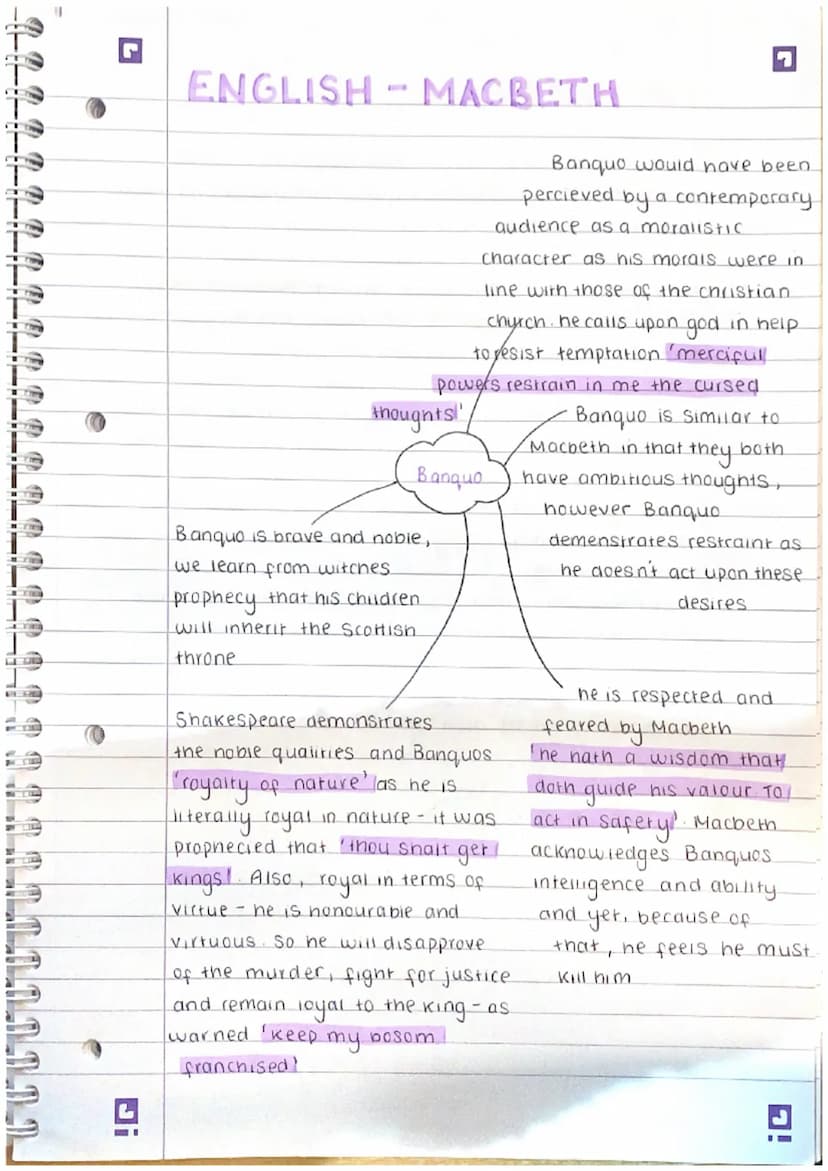 ENGLISH - MACBETH
Banquo would have been
percieved by a contemporary
audience as a moralistic
character as his morals were in
line with those of the christian
church. he calls upon god in help
to resist temptation 'merciful
powers restrain in me the cursed
thoughts'
Banquo
Banquo is similar to
Macbeth in that they both
have ambitious thoughts,
however Banquo
demenstrates restraint as
he doesn't act upon these
desires
Banquo is brave and noble,
we learn from witches
prophecy that his children
will inherit the Scottish
throne
Shakespeare demonstrates
the noble qualities and Banquos
'royalty of nature' as he is
literally royal in nature - it was
prophecied that 'thou shalt get
kings'. Also, royal in terms of
virtue - he is honourable and
virtuous. So he will disapprove
of the murder, fight for justice
and remain loyal to the king - as
warned 'keep my bosom
franchised'
he is respected and
feared by Macbeth
'he hath a wisdom that
doth guide his valour To
act in safety'. Macbeth
acknowledges Banquos
intelligence and ability
and yet, because of
that, he feels he must
kill him